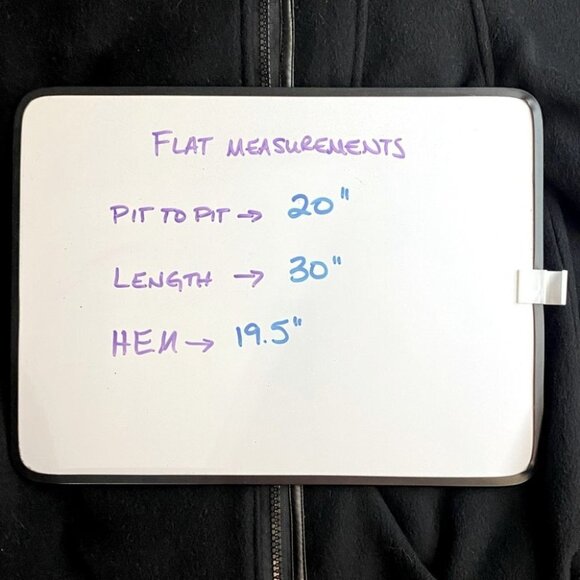 FLAT MEASUREMENTS
PIT TO PIT → 20"
LENGTH → 30"
HEM → 19.5"